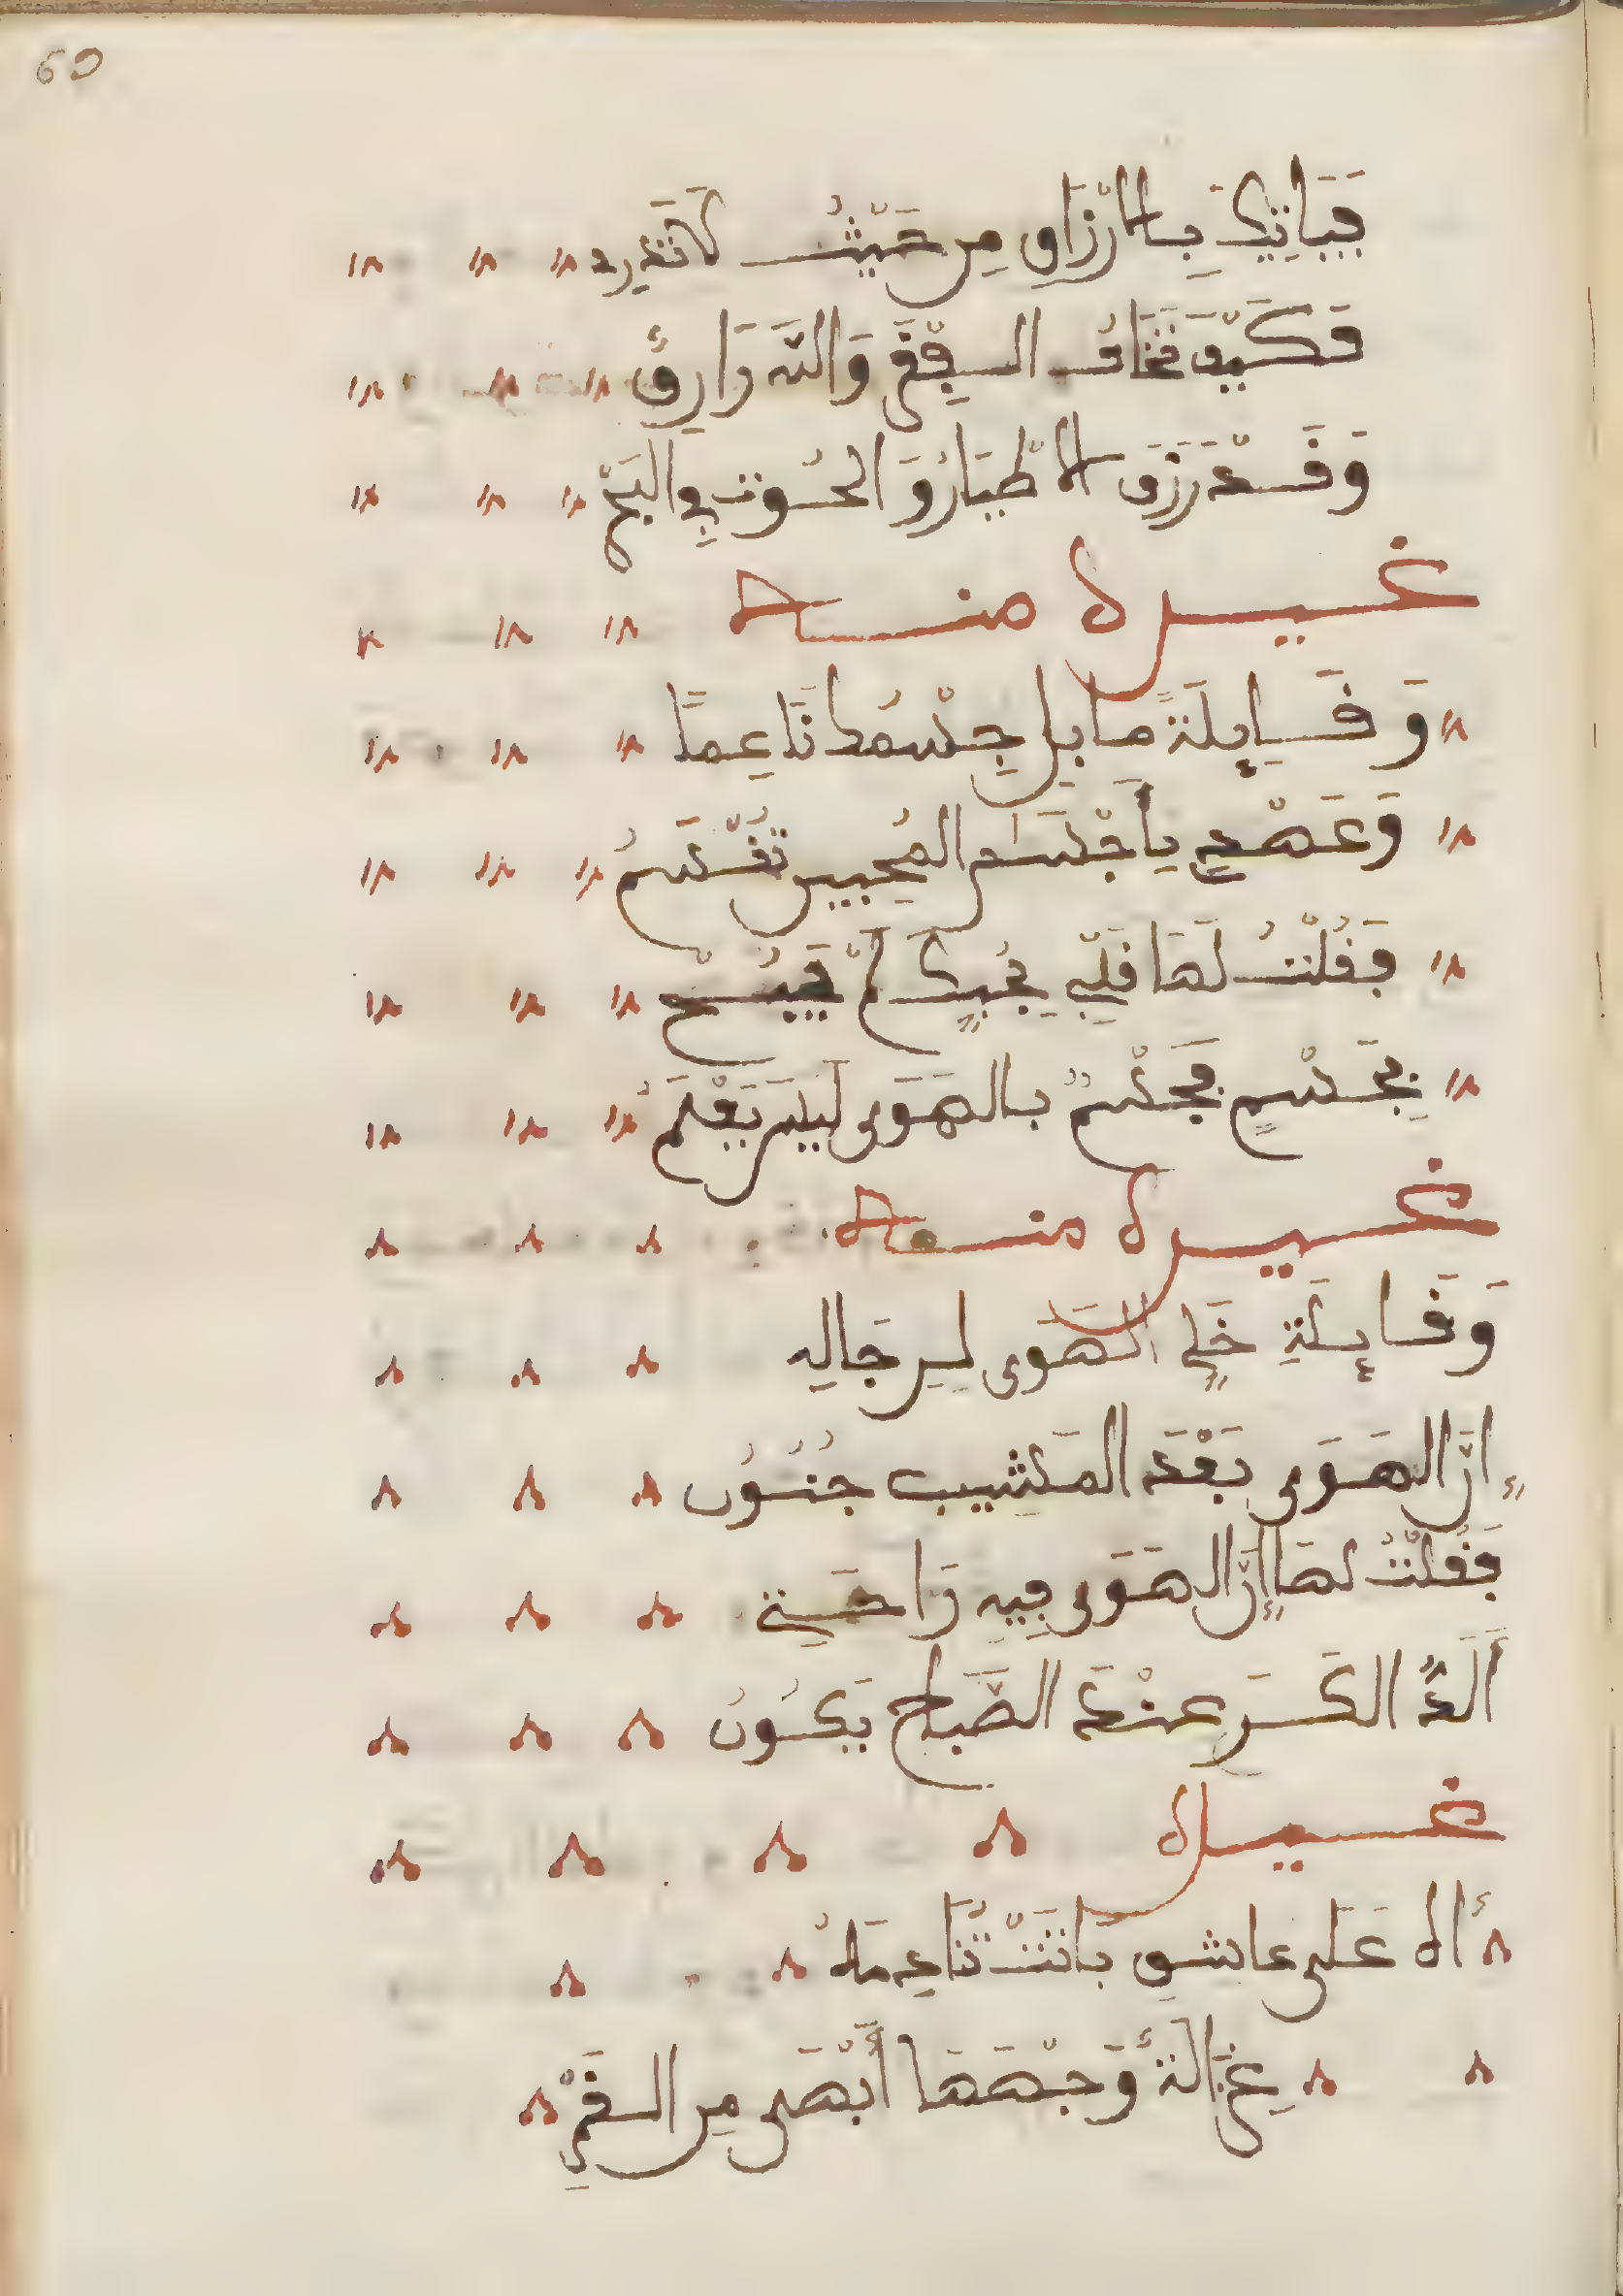 60
فَيَاتِيكَ بِالارْزَاقِ مِن حَيْثُ لَا تَدْرِي
فَكَيْفَ تَخَافُ الفَقْرَ وَاللَّه رَازِقٌ
وَقَدْ رَزَقَ الاطْيَارَ وَالحُوتَ فِي البَحْرْ
غيره منه
وَقَايِلَةً مابال جِسْمُكَ نَاعِمًا
وَعَهْدِي بِأَجْسَامِ المُحِبِين تُسْقَمُ
فَقُلْتُ لَهَا قَلْبِي بِحُبِّكِ لَمْ يَبُحْ
بِجَسْمٍ فَجَسْمٌ بالهَوَى لَيْسَ يَعْلَمُ
غيره منه
وَقَايِلَةٍ خَلِّ الهَوَى لِرِجَالِهِ
إنَّ الهَوَى بَعْدَ المَشِيبِ جُنُونُ
فَقُلْتُ لهَا إنَّ الهَوَى فِيهِ رَاحَةٌ
أَلَذُّ الكَرَى عِنْدَ الصَّبَاحِ يَكُونُ
غيره
الا عَلَى عاشِقٍ بَاتَتْ تُنَاعِمُهُ
غَزَالَةٌ وَجْهُهَا أَبْهَى مِن القَمَرْ